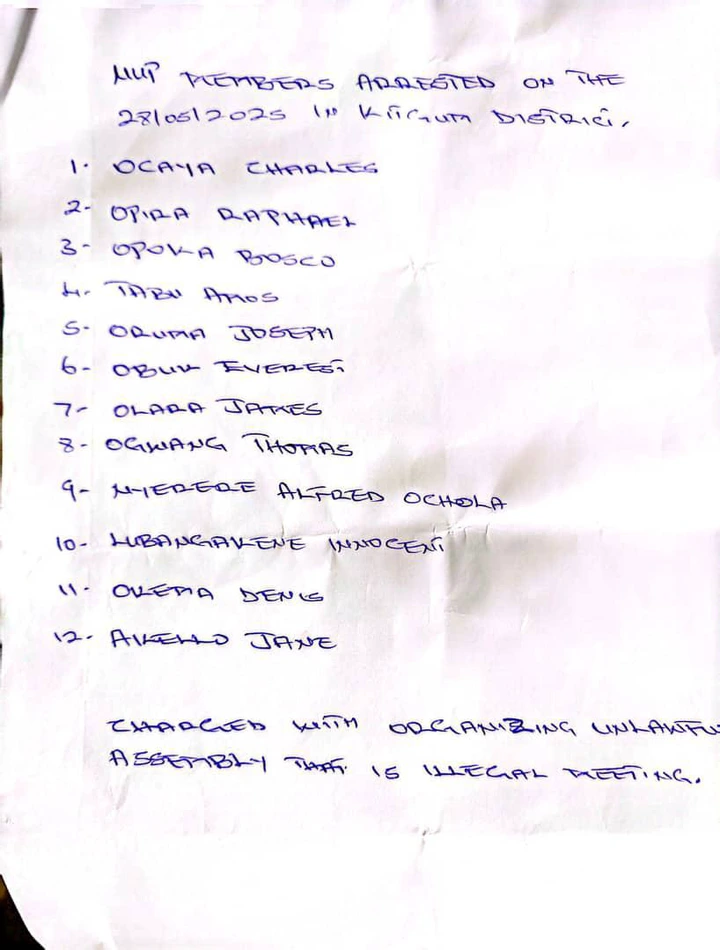 NUP MEMBERS ARRESTED ON THE
28/05/2025 IN KITGUM DISTRICT.
1. OCAYA CHARLES
2- OPIRA RAPHAEL
3- OPOKA BOSCO
4. TABU AMOS
5- ORUMA JOSEPH
6- OBUK EVEREST
7- OLARA JAMES
8- OGWANG THOMAS
9- NYERERE ALFRED OCHOLA
10- LUBANGAKENE INNOCENT
11- OKEMA DENIS
12- AKELLO JANE
CHARGED WITH ORGANIZING UNLAWFU
ASSEMBLY THAT IS ILLEGAL MEETING.